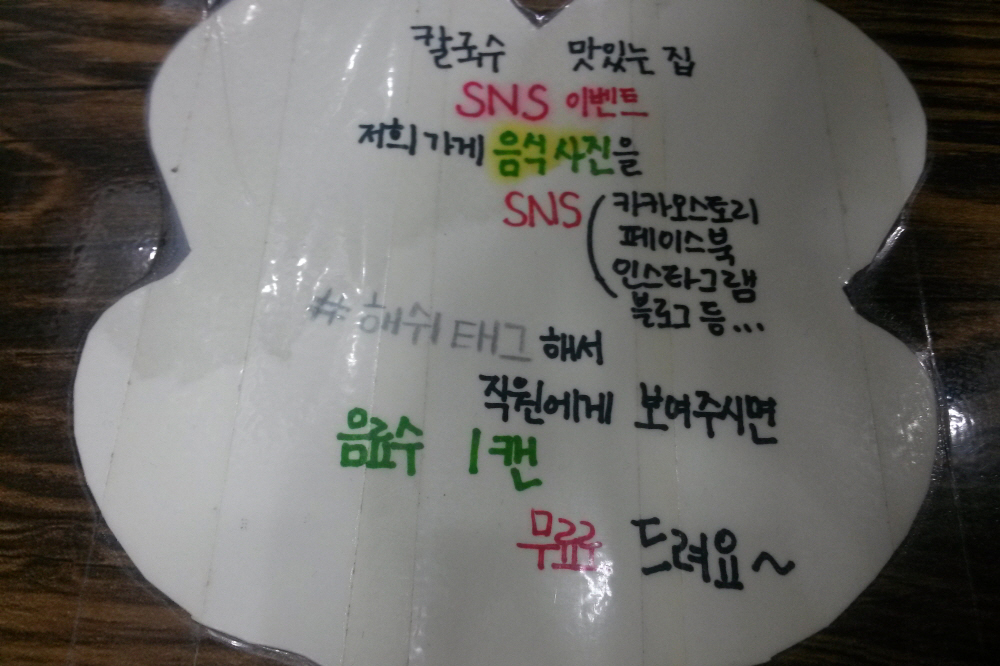 칼국수 맛있는 집
SNS 이벤트
저희 가게 음식 사진을
SNS (카카오스토리
페이스북
인스타그램
블로그 등...
# 해쉬태그 해서
직원에게 보여주시면
음료수 1캔
무료로 드려요~